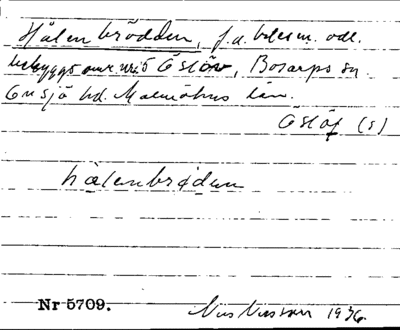 Hälenbrödden, f.d. betesm. odl.
bebyggt omr. vid Öslöv, Bosarps sn
Onsjö hd. Malmöhus län.
Öslöf (s)
hälenbrøden
Nr 5709.
Nils Nilsson 1936.